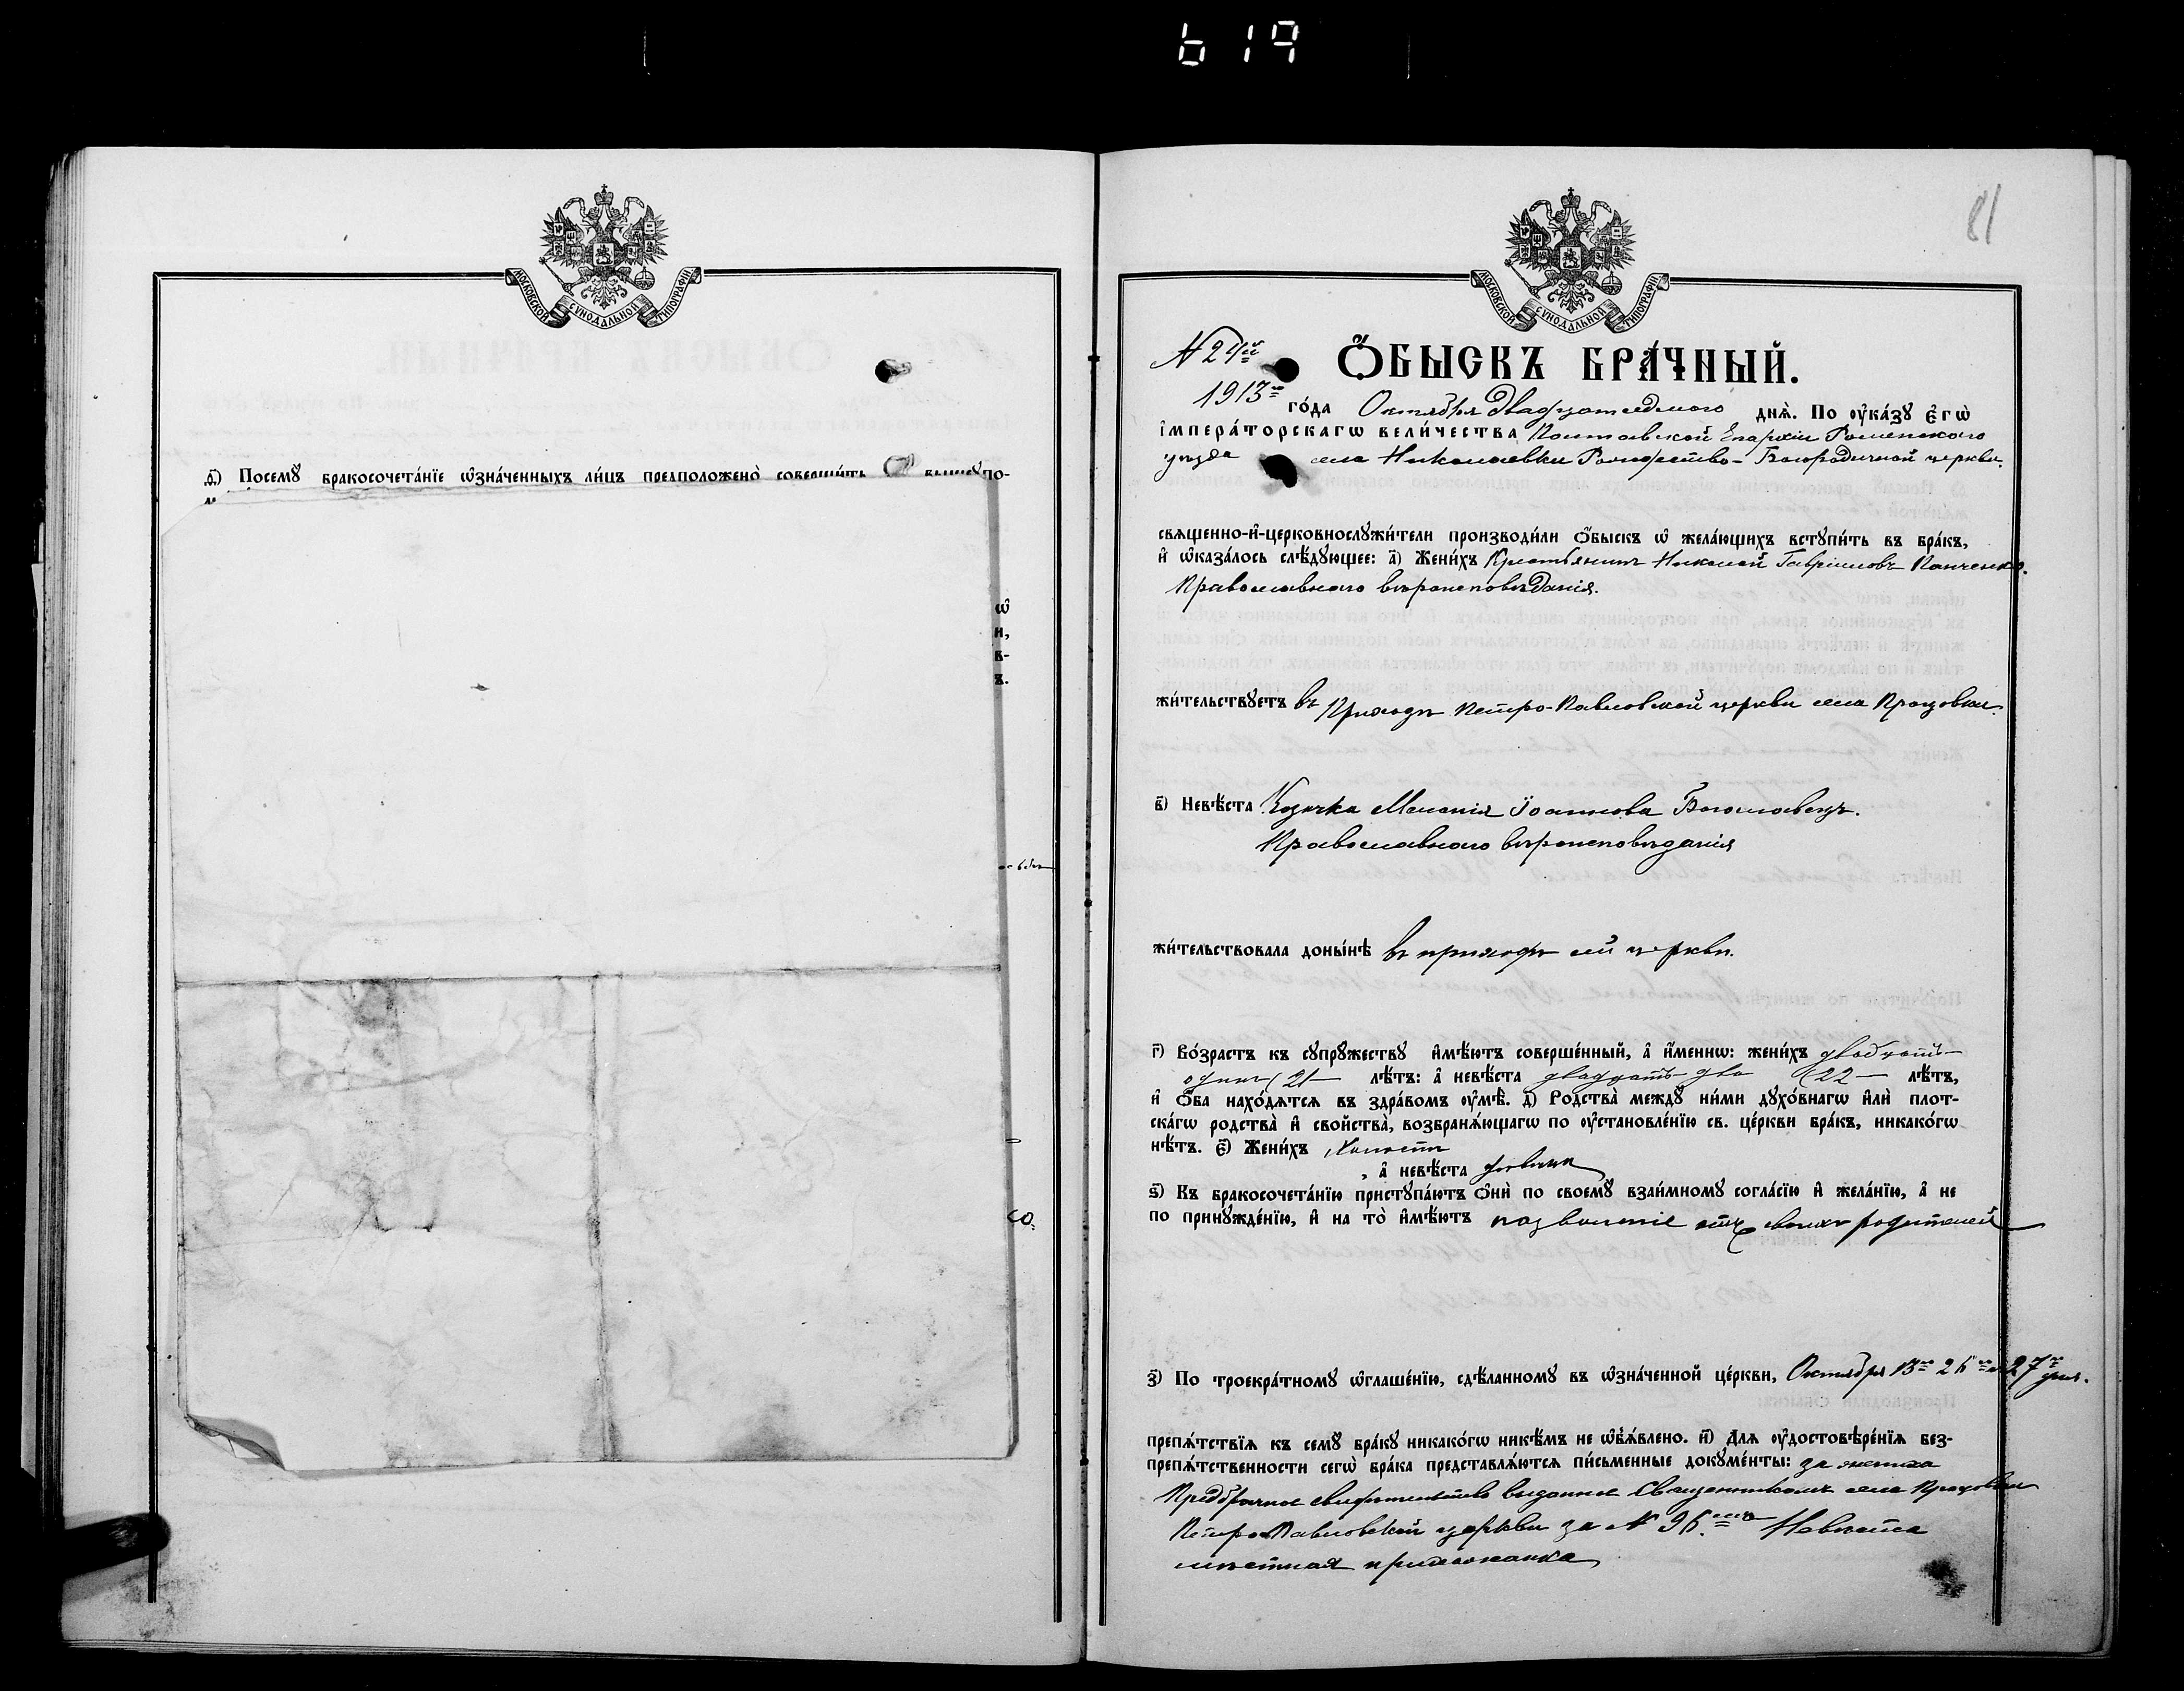 619
МОСКОВСКОЙ СѴНОДАЛЬНОЙ ТИПОГРАФІИ
д) Посемꙋ бракосочета́нїе ѡзна́ченныхъ ли́цъ предположено̀ соверши́ть
ѡ
и,
в-
ъ.
81
МОСКОВСКОЙ СѴНОДАЛЬНОЙ ТИПОГРАФІИ
N 24й
ѺБЫСКЪ БРА́ЧНЫЙ.
1913го го́да Октября двадцатседмого днѧ̀. По ᲂу҆ка́зꙋ є҆гѡ̀
і҆мпера́торскагѡ вели́чества Полтавской Епархіи Роменского
уѣзда села Николаевки Рождество-Богородичной церкви.
свѧщенно-и҆-церковнослꙋжи́тели производи́ли ѻ҆́быскъ ѡ҆ жела́ющихъ встꙋпи́ть въ бра́къ,
и҆ ѡ҆каза́лось слѣ́дꙋющее: а҃) Жени́хъ Крестьянинъ Николай Гавріиловъ Панченко.
Православного вѣроисповѣданія.
жи́тельствꙋетъ въ Приходѣ Петро-Павловской церкви села Процовки.
в҃) Невѣ́ста Козачка Меланія Іоаннова Богославецъ.
Православного вѣроисповѣданія
жи́тельствовала доны́нѣ въ приходѣ сей церкви.
г҃) Во́зрастъ къ сꙋпрꙋжествꙋ и҆мѣ́ютъ соверше́нный, а҆ и҆́меннѡ: жени́хъ двадцать
одинъ (21 лѣ́тъ: а҆ невѣ́ста двадцать два (22 лѣ́тъ,
и҆ ѻ҆́ба нахо́дѧтсѧ въ здра́вомъ ᲂу҆мѣ̀. д҃) Ро́дства̀ междꙋ̀ ни́ми дꙋхо́внагѡ и҆лѝ плот-
ска́гѡ родства̀ и҆ свойства̀, возбранѧ́ющагѡ по ᲂу҆становле́нїю св. це́ркви бра́къ, никако́гѡ
нѣ́тъ. є҃) Жени́хъ Холостъ
, а҆ невѣ́ста дѣвица
ѕ҃) Къ бракосочета́нїю пристꙋпа́ютъ ѻ҆нѝ по своемꙋ̀ взаи́мномꙋ согла́сїю и҆ жела́нїю, а҆ не
по принꙋжде́нїю, и҆ на то̀ и҆мѣ́ютъ позволеніе отъ своихъ родителей
з҃) По троекра́тномꙋ ѡ҆глаше́нїю, сдѣ́ланномꙋ въ ѡ҆зна́ченной це́ркви, Октября 13го 26го и 27го дня.
препѧ́тствїѧ къ семꙋ̀ бра́кꙋ никако́гѡ никѣ́мъ не ѡ҆б̾ѧ́влено. и҃) Длѧ ᲂу҆достовѣре́нїѧ без-
препѧ́тственности сегѡ̀ бра́ка представлѧ́ютсѧ пи́сьменные докꙋме́нты: за жениха
Предбрачное свидѣтельство выданное Священникомъ села Процовки
Петро-Павловской церкви за N 96. Невѣста
мѣстная прихожанка